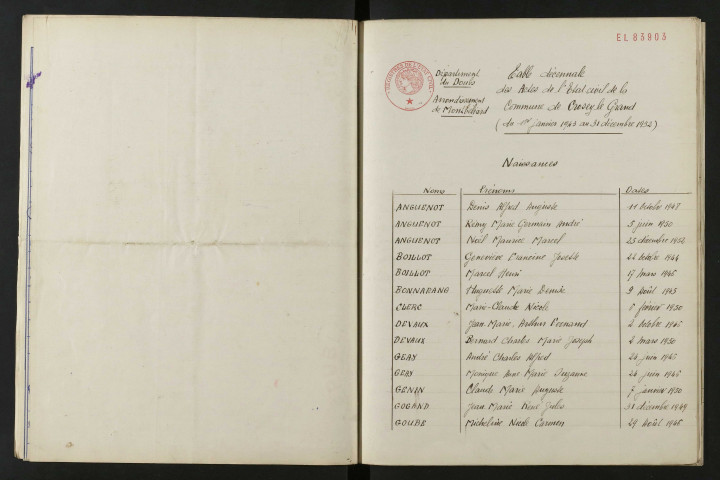 EL 83903
REGISTRES DE L'ETAT CIVIL
Département
du Doubs
Arrondissement
de Montbéliard
Table décennale
des Actes de l'Etat civil de la
Commune de Crosey le Grand
(du 1er janvier 1943 au 31 décembre 1952)
Naissances
Noms Prénoms Dates
ANGUENOT Denis Alfred Auguste 11 Octobre 1948
ANGUENOT Rémy Marie Germain André 5 juin 1950
ANGUENOT Noël Maurice Marcel 25 décembre 1952
BOILLOT Geneviève Francine Joseth 22 Octobre 1944
BOILLOT Marcel Henri 17 mars 1946
BONNARANG Huguette Marie Denise 9 Août 1945
CLERC Marie-Claude Nicole 6 février 1950
DEVAUX Jean-Marie, Arthur Fernand 2 Octobre 1946
DEVAUX Bernard Charles Marie Joseph 2 mars 1950
GEAY André Charles Alfred 24 juin 1946
GEAY Monique Anne Marie Suzanne 24 juin 1946
GENIN Claude Marie Auguste 7 janvier 1950
GOGAND Jean-Marie Jules 31 décembre 1949
GOUBE Micheline Nicole Carmen 29 Août 1948